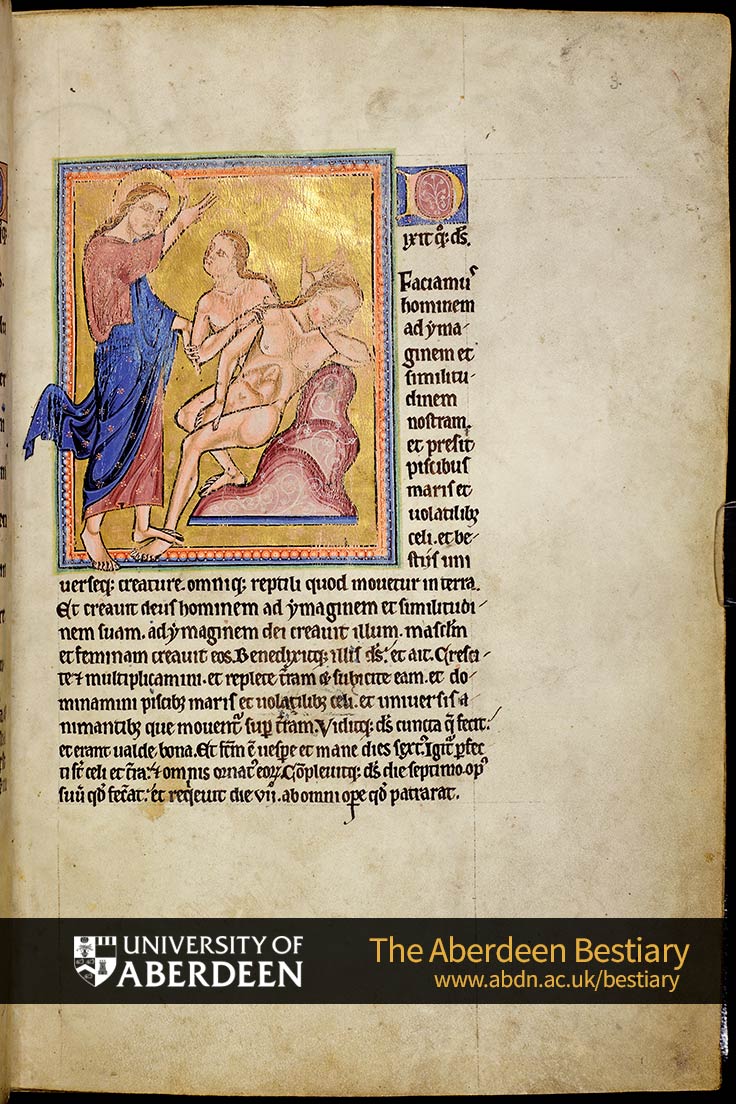 D
ixit q; d̄s.
Faciamus
hominem
ad ẏma-
ginem et
similitu-
dinem
nostram.
et presit
piscibus
maris et
uolatilibꝫ
celi. et be-
stiis uni
uerseq; creature. omniq; reptili quod mouetur in terra.
Et creauit deus hominem ad ẏmaginem et similitudi-
nem suam. ad ẏmaginem dei creauit illum. mascl̄m
et feminam creauit eos. Benedixitq; illis d̄s. et ait. Cresci-
te ⁊ multiplicamini. et replete t̄ram ⁊ subicite eam. et do-
minamini piscibꝫ maris et uolatilibꝫ celi. et uniuersis a-
nimantibꝫ que mouent᷑ sup̄ t̄ram. Viditq; d̄s cuncta q̄ fecit.
et erant ualde bona. Et fc̄m ē uesp̄e et mane dies sext᷒. Igit᷑ ꝑfec
ti st̄ celi et t̄ra. ⁊ omnis ornat᷒ eoꝝ. Cōpleuitq; d̄s die septimo. op᷒
suū qd̄ fec̄at. et req̇euit die vii. ab omni oꝑe qd̄ patrarat.
UNIVERSITY OF
ABERDEEN
The Aberdeen Bestiary
www.abdn.ac.uk/bestiary